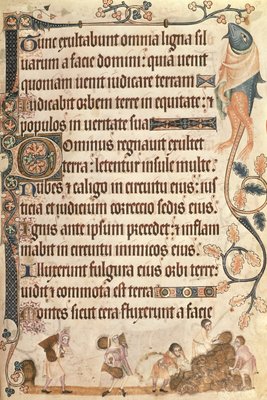 Tunc exultabunt omnia ligna sil
uarum a facie domini: quia uenit
quoniam uenit iudicare terram
Iudicabit orbem terre in equitate: et
populos in ueritate sua
Dominus regnauit exultet
terra: letentur insule multe.
Nubes et caligo in circuitu eius: iusti
cia et iudicium correccio sedis eius.
Ignis ante ipsum precedet: et inflam
mabit in circuitu inimicos eius
Illuxerunt fulgura eius orbi terre:
uidit et commota est terra
Montes sicut cera fluxerunt a facie